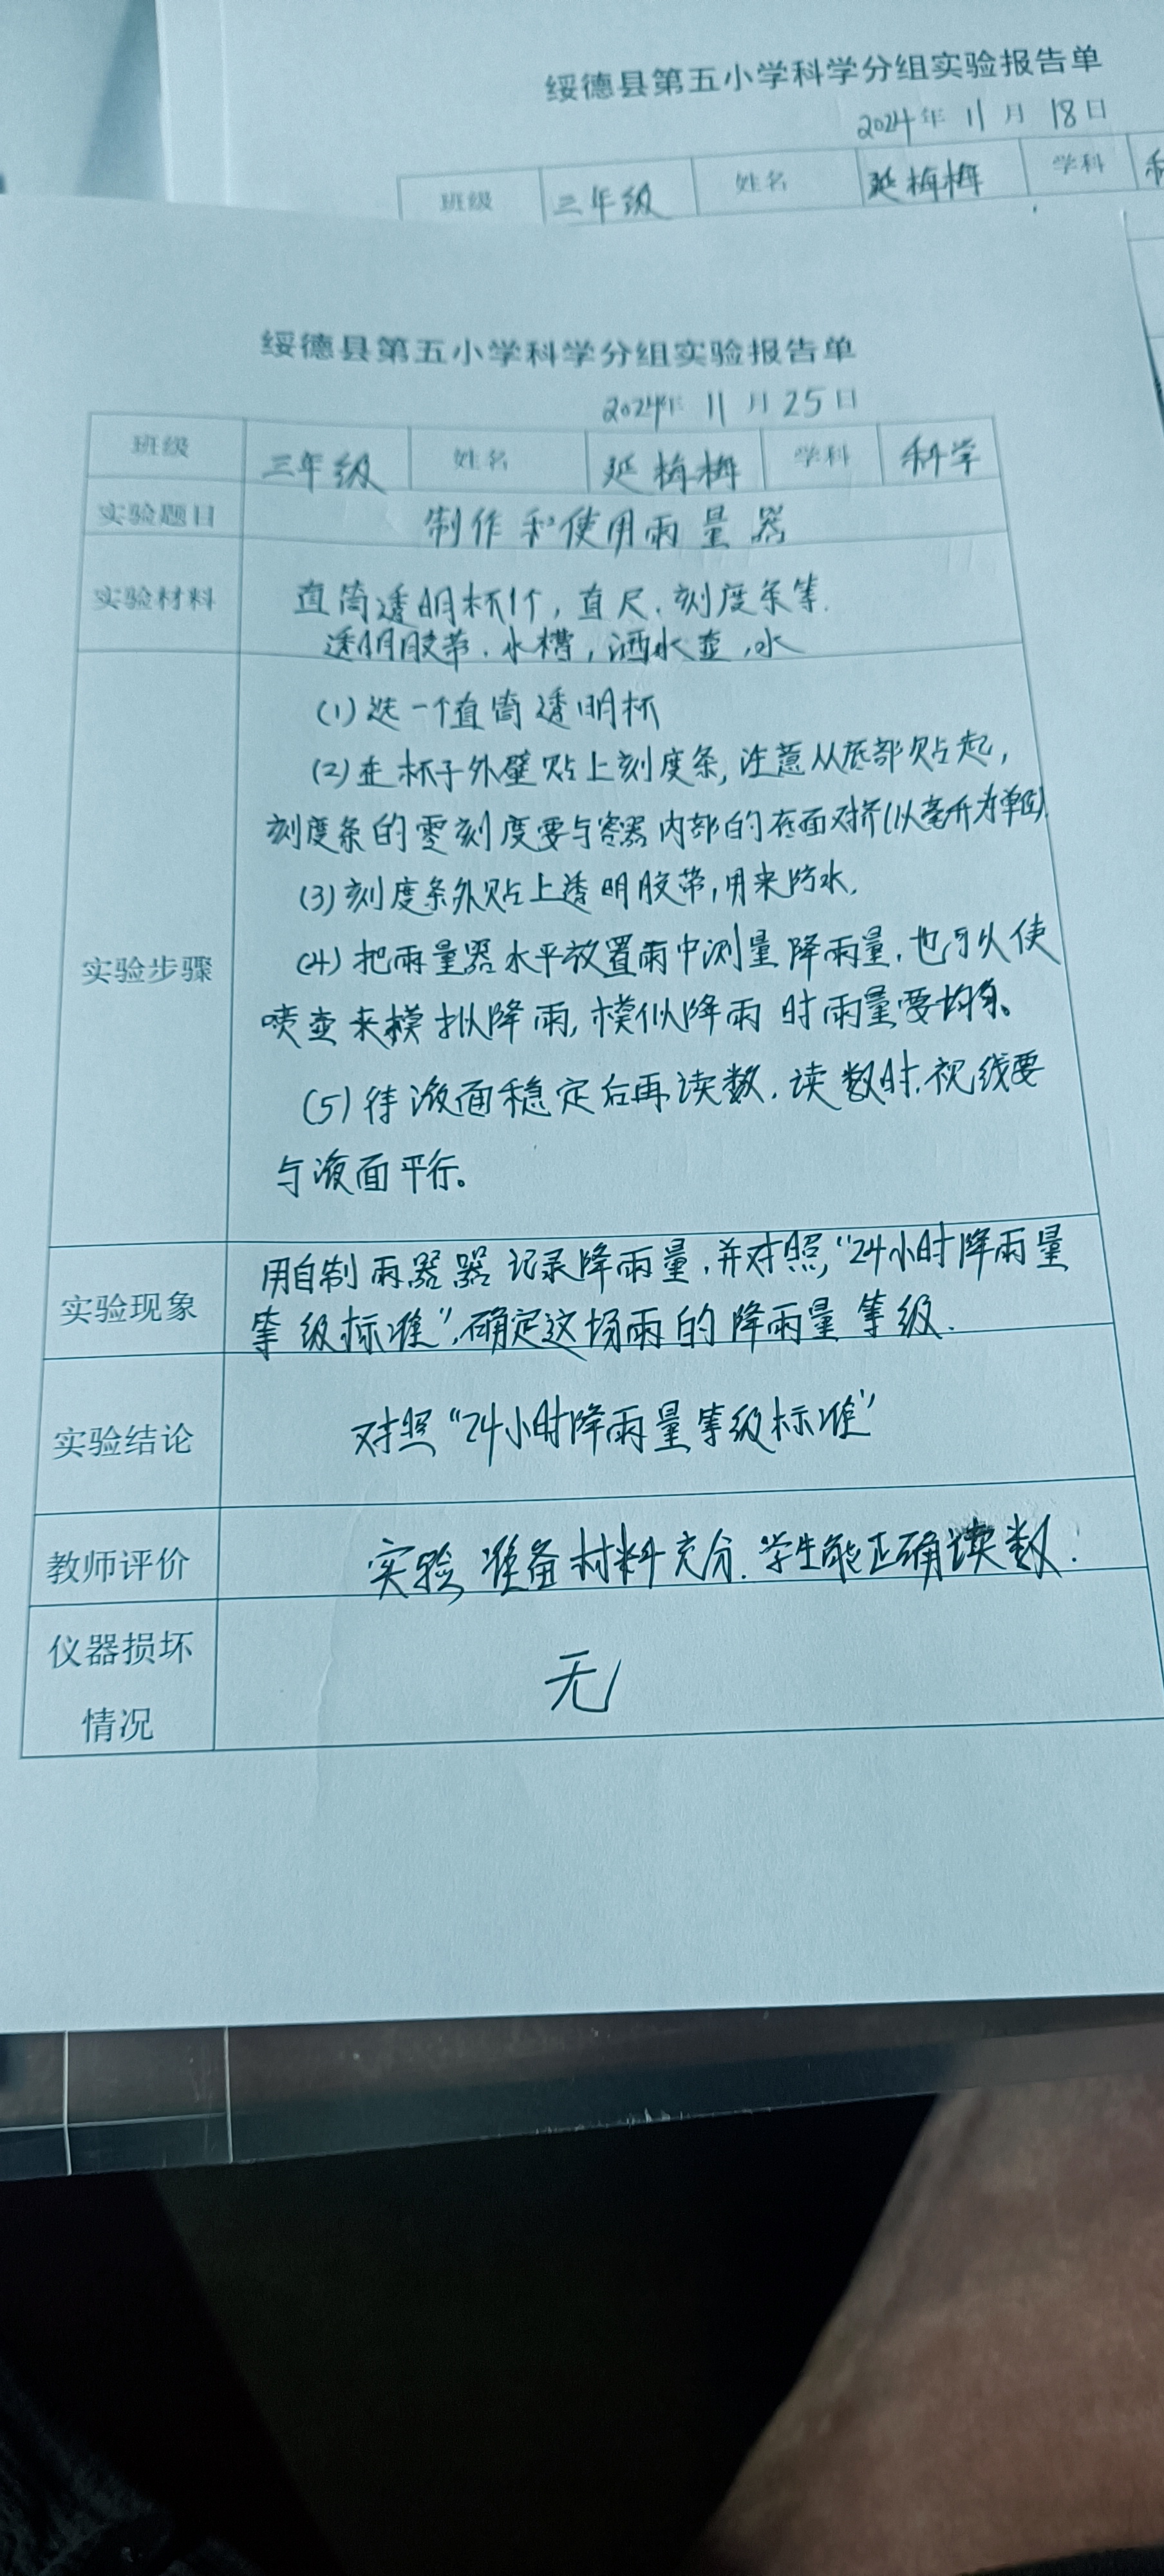 绥德县第五小学科学分组实验报告单
2024年 11 月 18日
班级 三年级 姓名 延梅梅 学科
绥德县第五小学科学分组实验报告单
2024年 11 月 25日
班级 三年级 姓名 延梅梅 学科 科学
实验题目 制作和使用雨量器
实验材料 直筒透明杯1个,直尺、刻度条等.
透明胶带、水槽,洒水壶,水
实验步骤
(1)选一个直筒透明杯
(2)在杯子外壁贴上刻度条,注意从底部贴起,
刻度条的零刻度要与容器内部的底面对齐(以毫升为单位)
(3)刻度条外贴上透明胶带,用来防水.
(4)把雨量器水平放置雨中测量降雨量,也可以使
喷壶来模拟降雨,模似降雨时雨量要均匀。
(5)待液面稳定后再读数.读数时,视线要
与液面平行。
实验现象 用自制雨器器记录降雨量,并对照,“24小时降雨量
等级标准”,确定这场雨的降雨量等级.
实验结论 对照“24小时降雨量等级标准”
教师评价 实验准备材料充分.学生能正确读数.
仪器损坏
情况 无